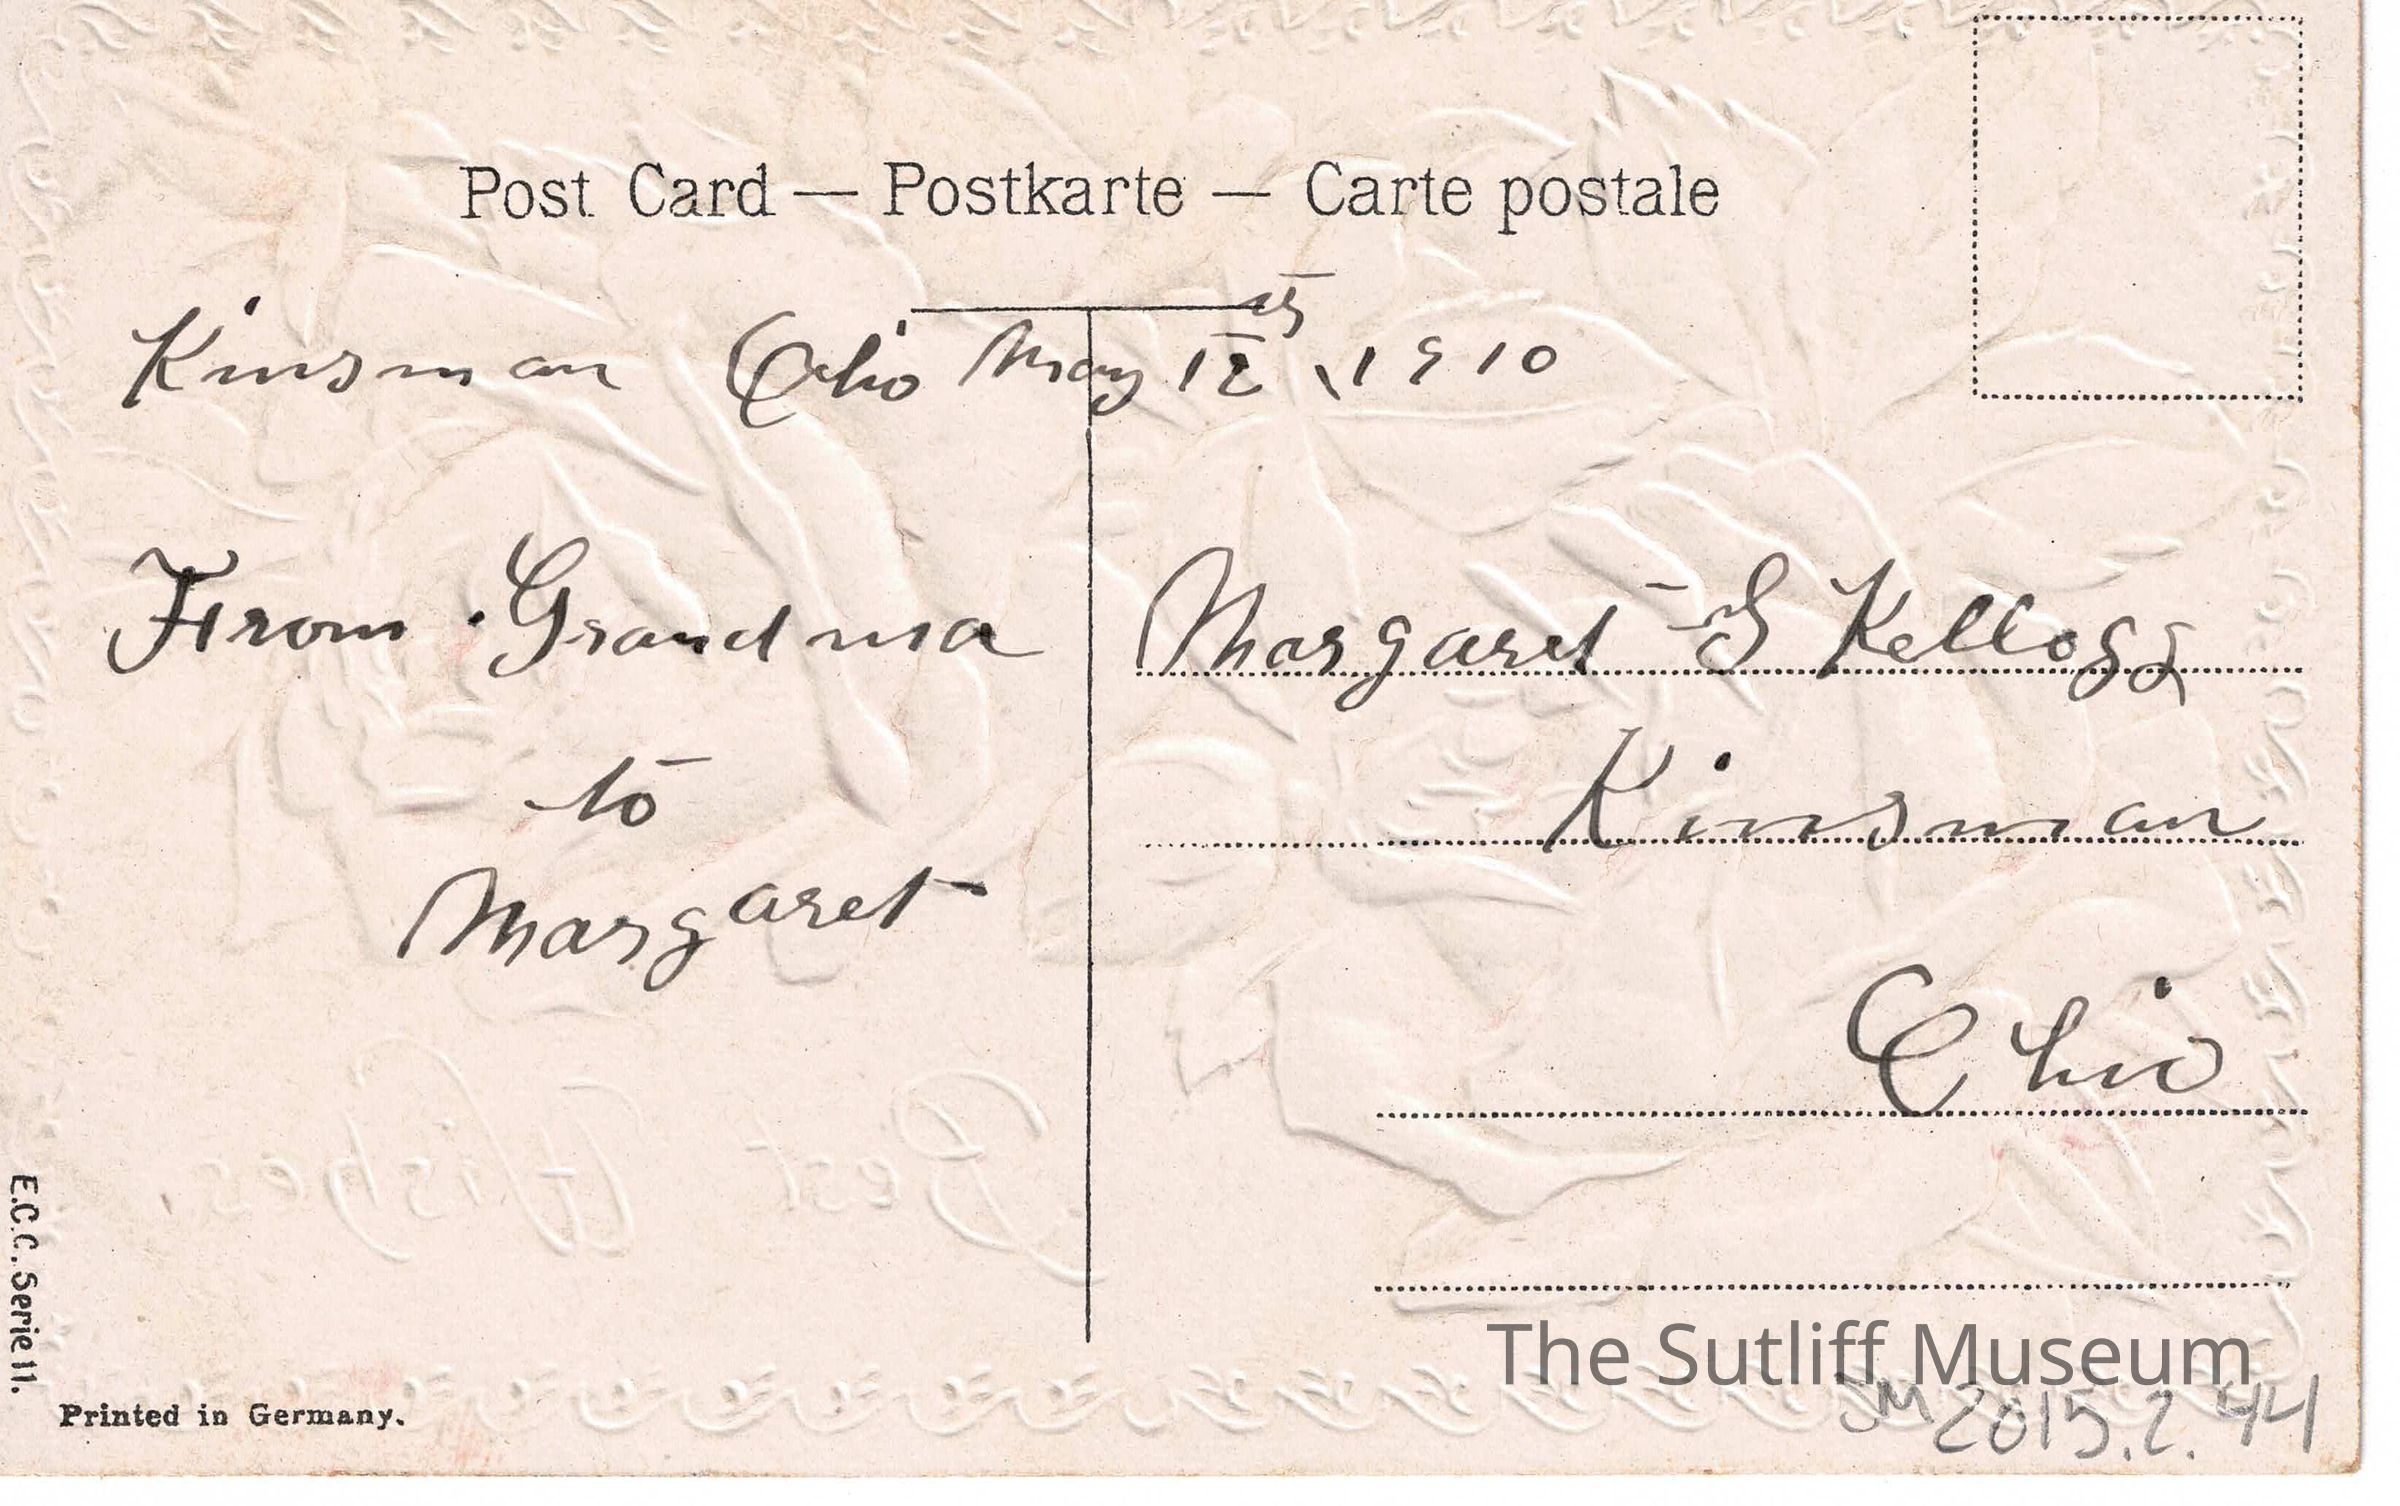 Post Card — Postkarte — Carte postale
Kinsman Ohio May 12, 1910
From Grandma
to
Margaret
Margaret S Kellogg
Kinsman
Ohio
Best Wishes
E.C.C. Serie 11.
Printed in Germany.
The Sutliff Museum
SM 2015.2.44